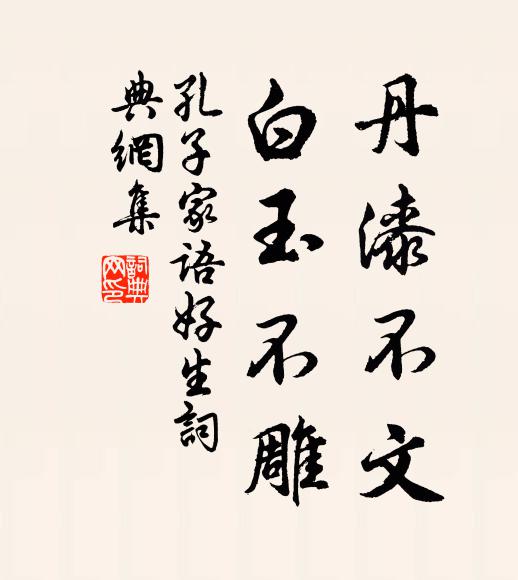 丹漆不文
白玉不雕
孔子家語好生詞
典網集
詞典
网印